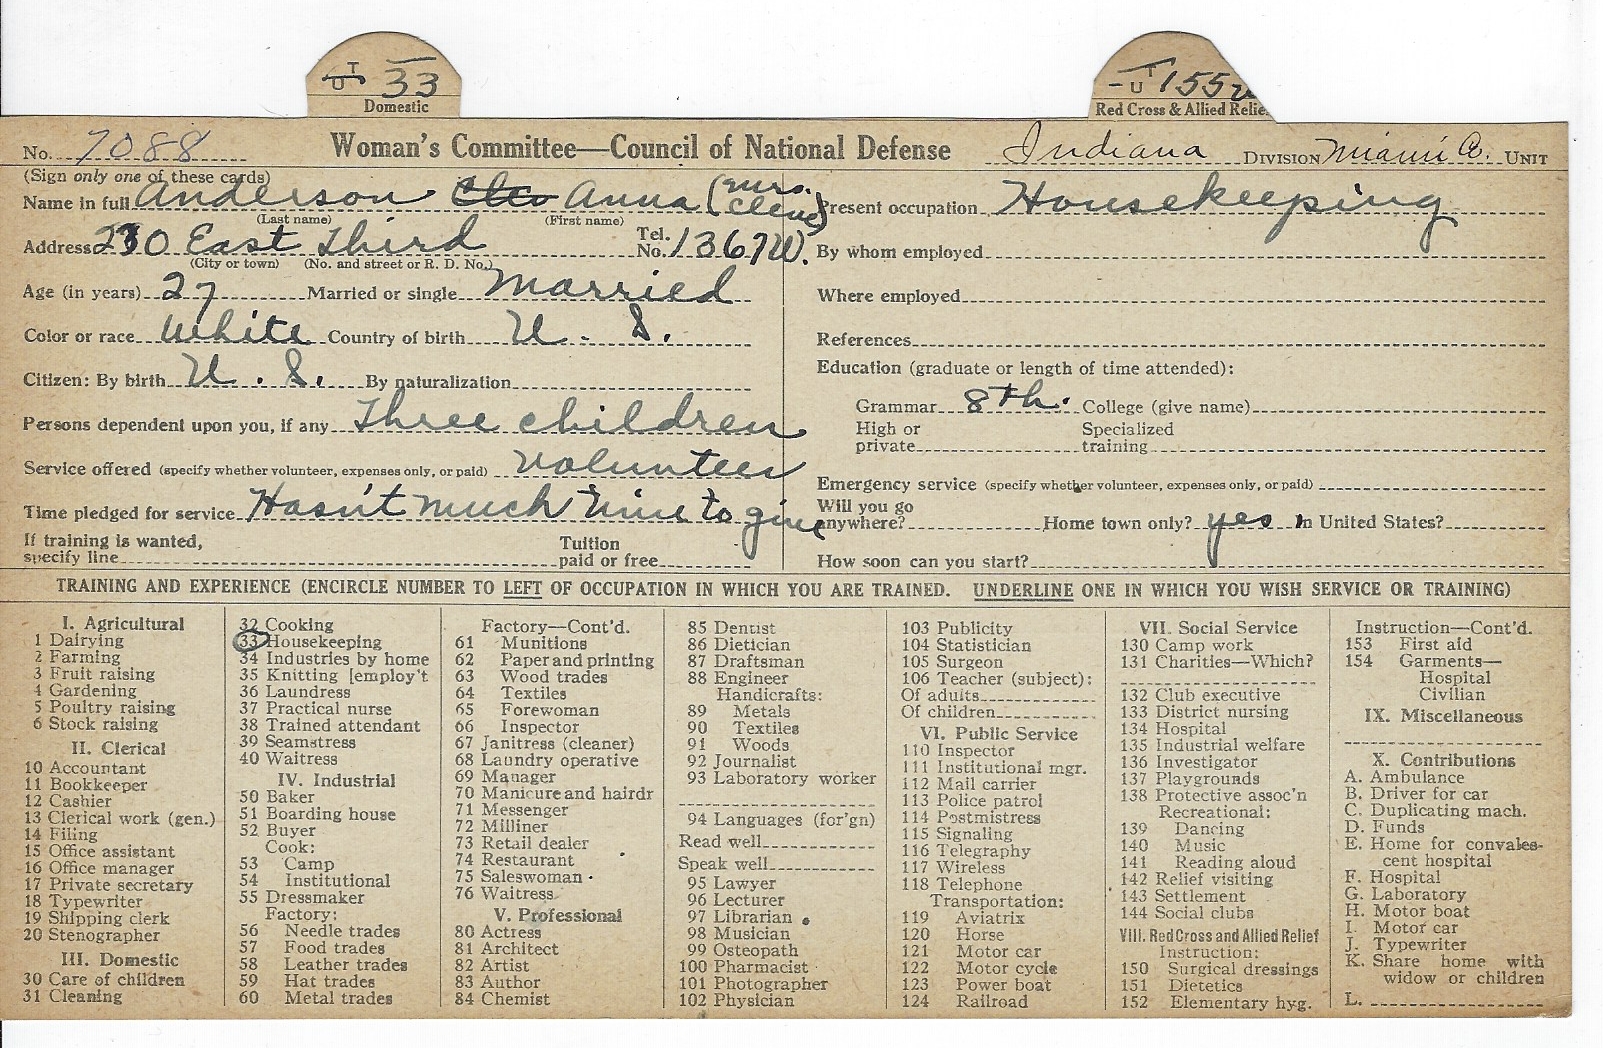 UT 33
Domestic
UT 155
Red Cross & Allied Relie
No. 7088
Woman's Committee—Council of National Defense
Indiana DIVISION Miami Co. UNIT
(Sign only one of these cards)
Name in full Anderson Anna (Mrs. Cleve)
(Last name) (First name)
Address 230 East Third Tel. No. 1367W.
(City or town) (No. and street or R. D. No.)
Age (in years) 27 Married or single Married
Color or race White Country of birth U. S.
Citizen: By birth U. S. By naturalization
Persons dependent upon you, if any Three children
Service offered (specify whether volunteer, expenses only, or paid) Volunteer
Time pledged for service Hasn't much time to give
If training is wanted, specify line
Tuition paid or free
Present occupation Housekeeping
By whom employed
Where employed
References
Education (graduate or length of time attended):
Grammar 8th. College (give name)
High or private
Specialized training
Emergency service (specify whether volunteer, expenses only, or paid)
Will you go anywhere? Home town only? yes In United States?
How soon can you start?
TRAINING AND EXPERIENCE (ENCIRCLE NUMBER TO LEFT OF OCCUPATION IN WHICH YOU ARE TRAINED. UNDERLINE ONE IN WHICH YOU WISH SERVICE OR TRAINING)
I. Agricultural
1 Dairying
2 Farming
3 Fruit raising
4 Gardening
5 Poultry raising
6 Stock raising
II. Clerical
10 Accountant
11 Bookkeeper
12 Cashier
13 Clerical work (gen.)
14 Filing
15 Office assistant
16 Office manager
17 Private secretary
18 Typewriter
19 Shipping clerk
20 Stenographer
III. Domestic
30 Care of children
31 Cleaning
32 Cooking
33 Housekeeping
34 Industries by home
35 Knitting [employ't
36 Laundress
37 Practical nurse
38 Trained attendant
39 Seamstress
40 Waitress
IV. Industrial
50 Baker
51 Boarding house
52 Buyer
Cook:
53 Camp
54 Institutional
55 Dressmaker
Factory:
56 Needle trades
57 Food trades
58 Leather trades
59 Hat trades
60 Metal trades
Factory—Cont'd.
61 Munitions
62 Paper and printing
63 Wood trades
64 Textiles
65 Forewoman
66 Inspector
67 Janitress (cleaner)
68 Laundry operative
69 Manager
70 Manicure and hairdr
71 Messenger
72 Milliner
73 Retail dealer
74 Restaurant
75 Saleswoman
76 Waitress
V. Professional
80 Actress
81 Architect
82 Artist
83 Author
84 Chemist
85 Dentist
86 Dietician
87 Draftsman
88 Engineer
Handicrafts:
89 Metals
90 Textiles
91 Woods
92 Journalist
93 Laboratory worker
94 Languages (for'gn)
Read well
Speak well
95 Lawyer
96 Lecturer
97 Librarian
98 Musician
99 Osteopath
100 Pharmacist
101 Photographer
102 Physician
103 Publicity
104 Statistician
105 Surgeon
106 Teacher (subject):
Of adults
Of children
VI. Public Service
110 Inspector
111 Institutional mgr.
112 Mail carrier
113 Police patrol
114 Postmistress
115 Signaling
116 Telegraphy
117 Wireless
118 Telephone
Transportation:
119 Aviatrix
120 Horse
121 Motor car
122 Motor cycle
123 Power boat
124 Railroad
VII. Social Service
130 Camp work
131 Charities—Which?
132 Club executive
133 District nursing
134 Hospital
135 Industrial welfare
136 Investigator
137 Playgrounds
138 Protective assoc'n
Recreational:
139 Dancing
140 Music
141 Reading aloud
142 Relief visiting
143 Settlement
144 Social clubs
VIII. Red Cross and Allied Relief
Instruction:
150 Surgical dressings
151 Dietetics
152 Elementary hyg.
Instruction—Cont'd.
153 First aid
154 Garments—
Hospital
Civilian
IX. Miscellaneous
X. Contributions
A. Ambulance
B. Driver for car
C. Duplicating mach.
D. Funds
E. Home for convales-
cent hospital
F. Hospital
G. Laboratory
H. Motor boat
I. Motor car
J. Typewriter
K. Share home with
widow or children
L.